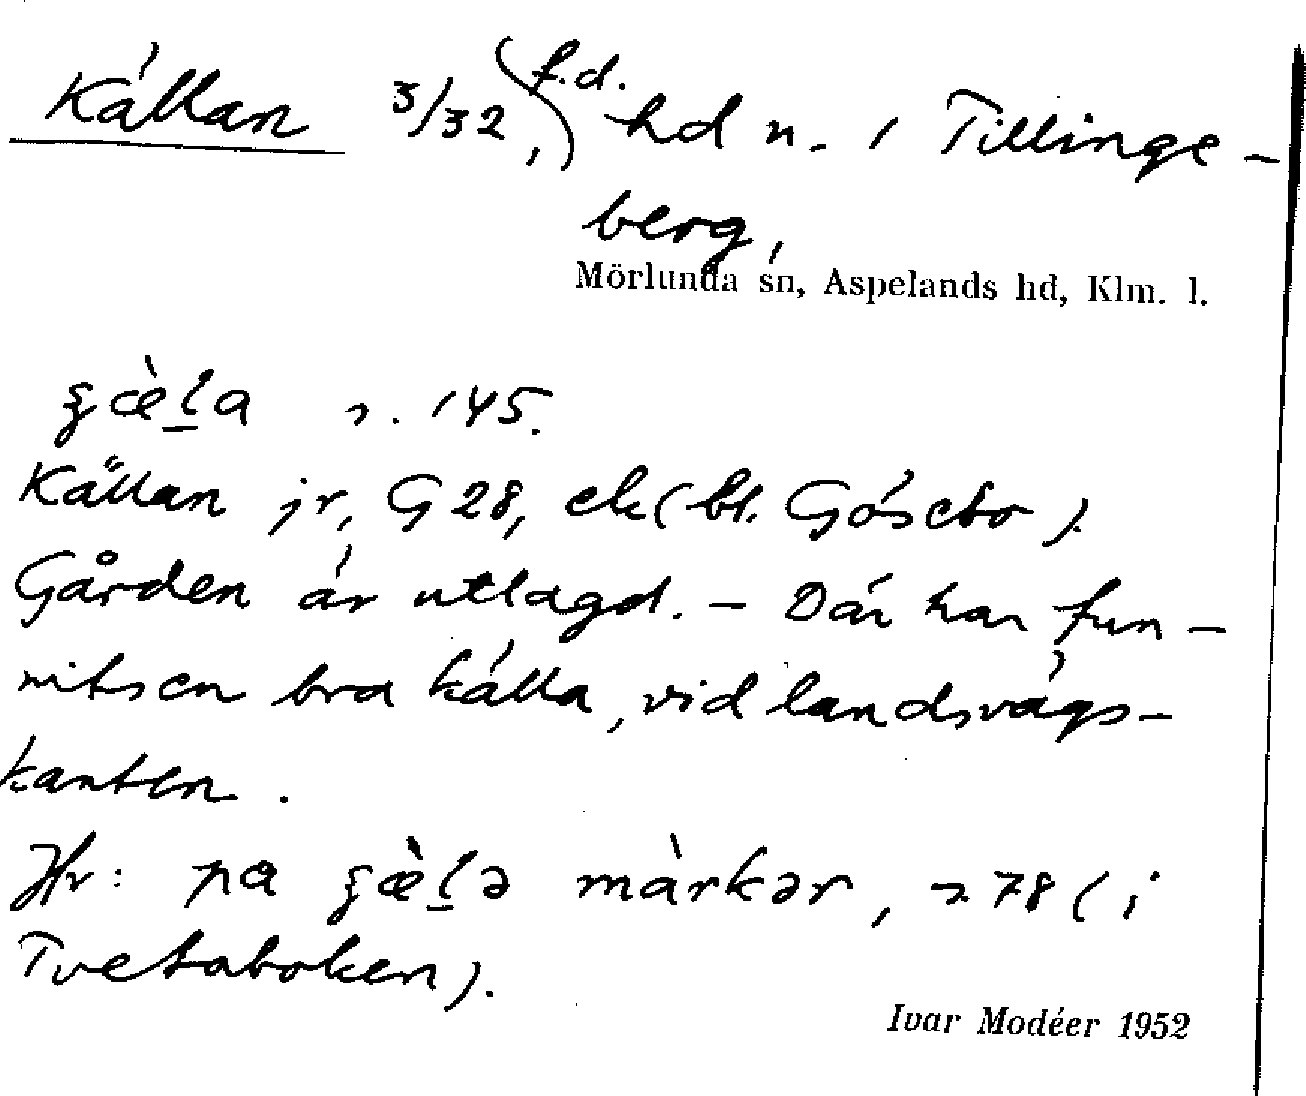 Källan 3/32, (f.d.) hd n. i Tillinge-
berg,
Mörlunda sn, Aspelands hd, Klm. l.
s. 145.
Källan jr, G 28, ek (bl. Göscbo).
Gården är utlagd. – Där har fun-
nitsen bra källa, vid landsvägs-
kanten.
Hr: pa màrkər, s. 78 (i
Tvetaboken).
Ivar Modéer 1952